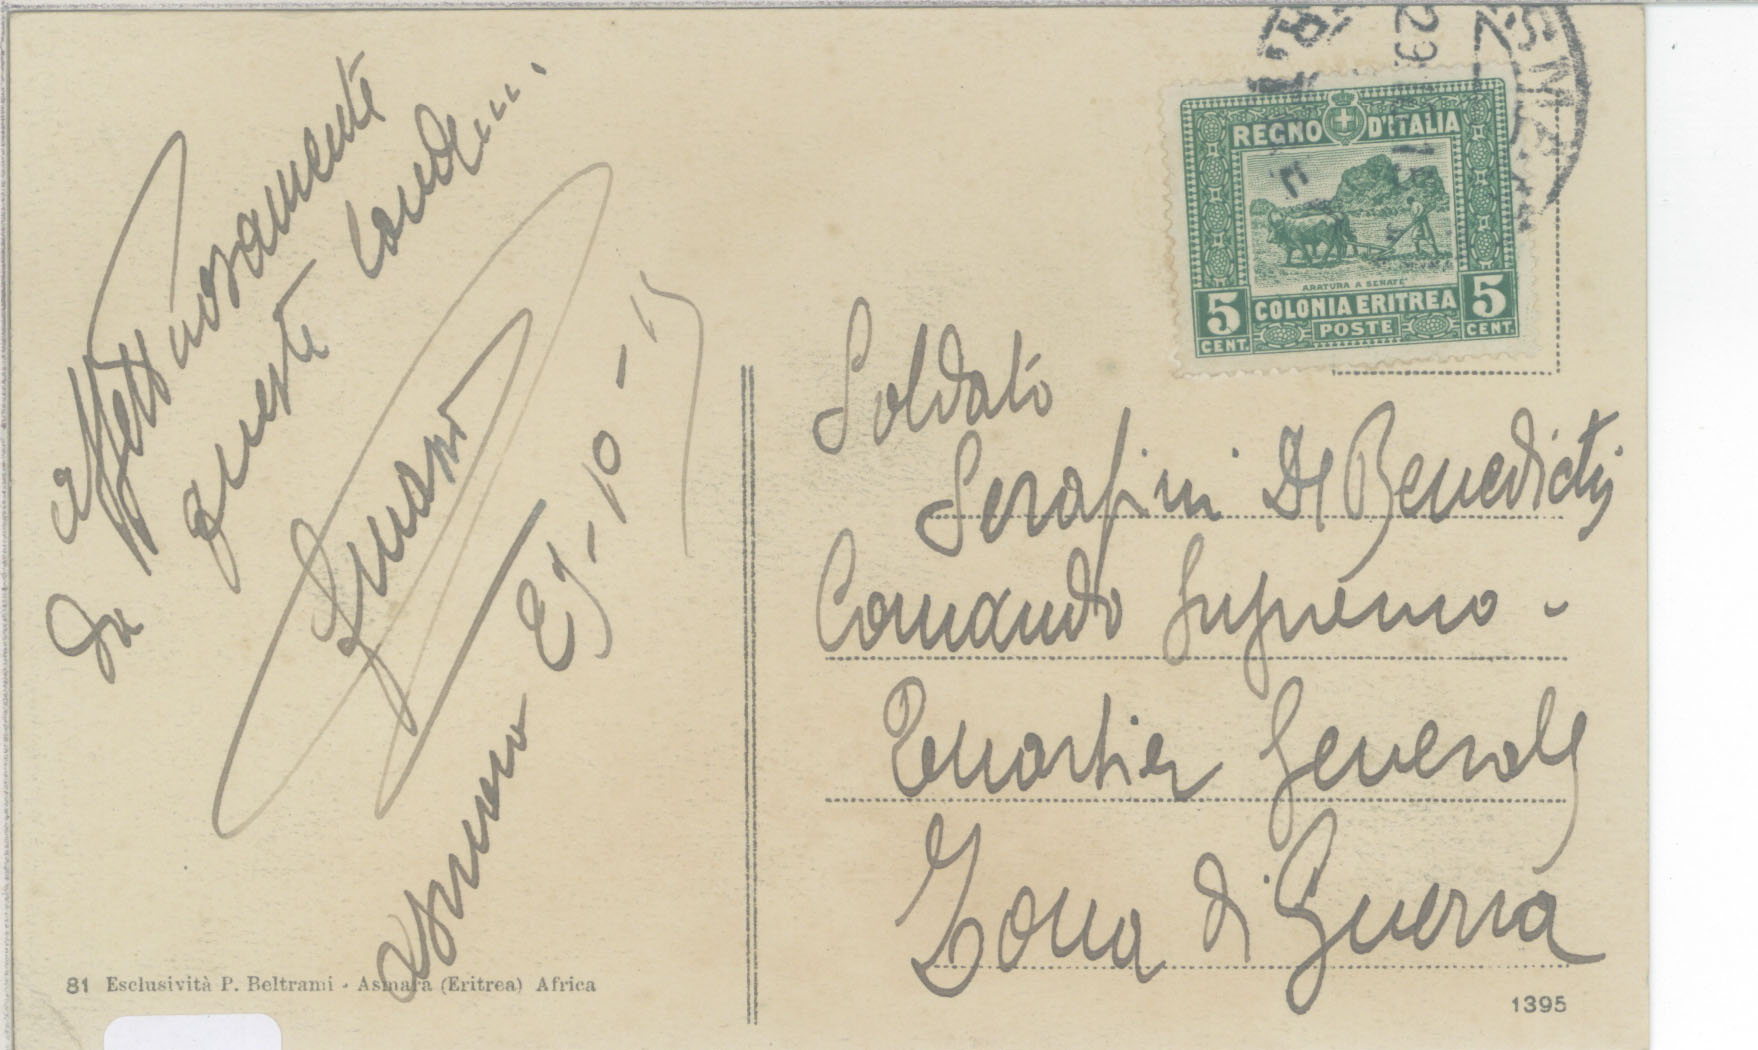 affettuosamente
da queste lande...
Asmara 29-10-15
81 Esclusività P. Beltrami - Asmara (Eritrea) Africa
ASMARA
29
15
REGNO D'ITALIA
ARATURA A SENAFÈ
5 COLONIA ERITREA 5
CENT. POSTE CENT.
Soldato
Serafini De Benedictis
Comando Supremo -
Quartier Generale
Zona di Guerra
1395